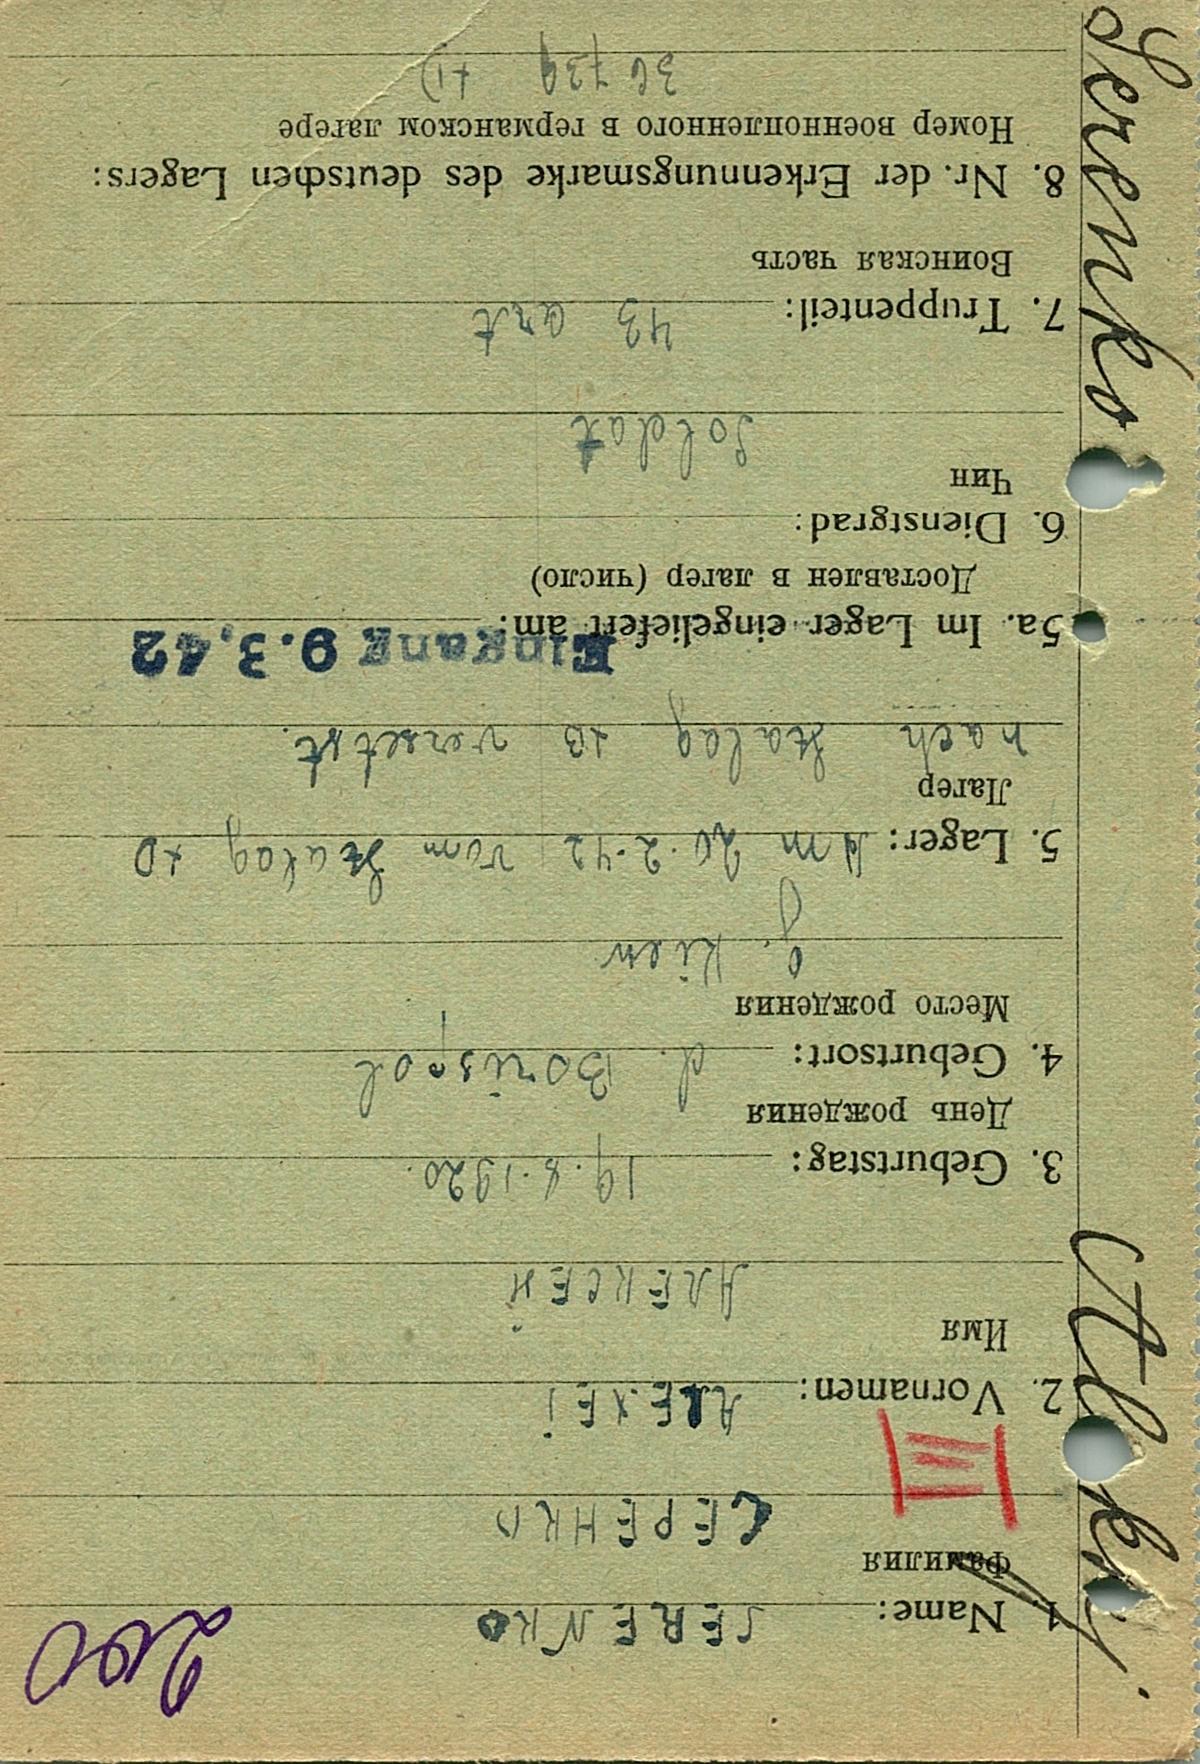 200
1. Name: SERENKO
Фамилия
СЕРЕНКО
III
2. Vornamen: ALEXEj
Имя
АЛЕКСЕЙ
3. Geburtstag: 19.8.1920.
День рождения
4. Geburtsort: d. Borispol
Место рождения
g. Kiew
5. Lager: Am 20.2.42 vom Stalag XD
Лагер
nach Stalag XB versetzt.
Eingang 9.3.42
5a. Im Lager eingeliefert am:
Доставлен в лагер (число)
6. Dienstgrad:
Чин
Soldat
7. Truppenteil: 43 art
Воинская часть
8. Nr. der Erkennungsmarke des deutschen Lagers:
Номер военнопленного в германском лагере
Serenko